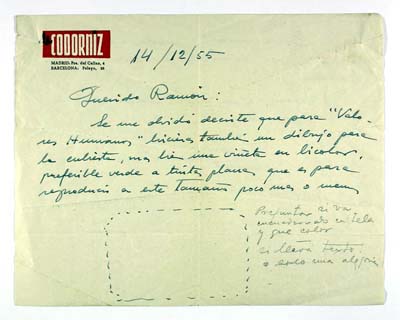 CODORNIZ
MADRID: Pza. del Callao, 4
BARCELONA: Pelayo,
14/12/55
Querido Ramón:
Se me olvidó decirte que para "Valo-
res Humanos" hicieras también un dibujo para
la cubierta, mas bien una viñeta en bicolor,
preferible verde a tintas planas que es para
reproducir a este tamaño poco mas o menos
Preguntar si va
encuadernado en tela
y que color
si lleva texto.
o solo una alegoria